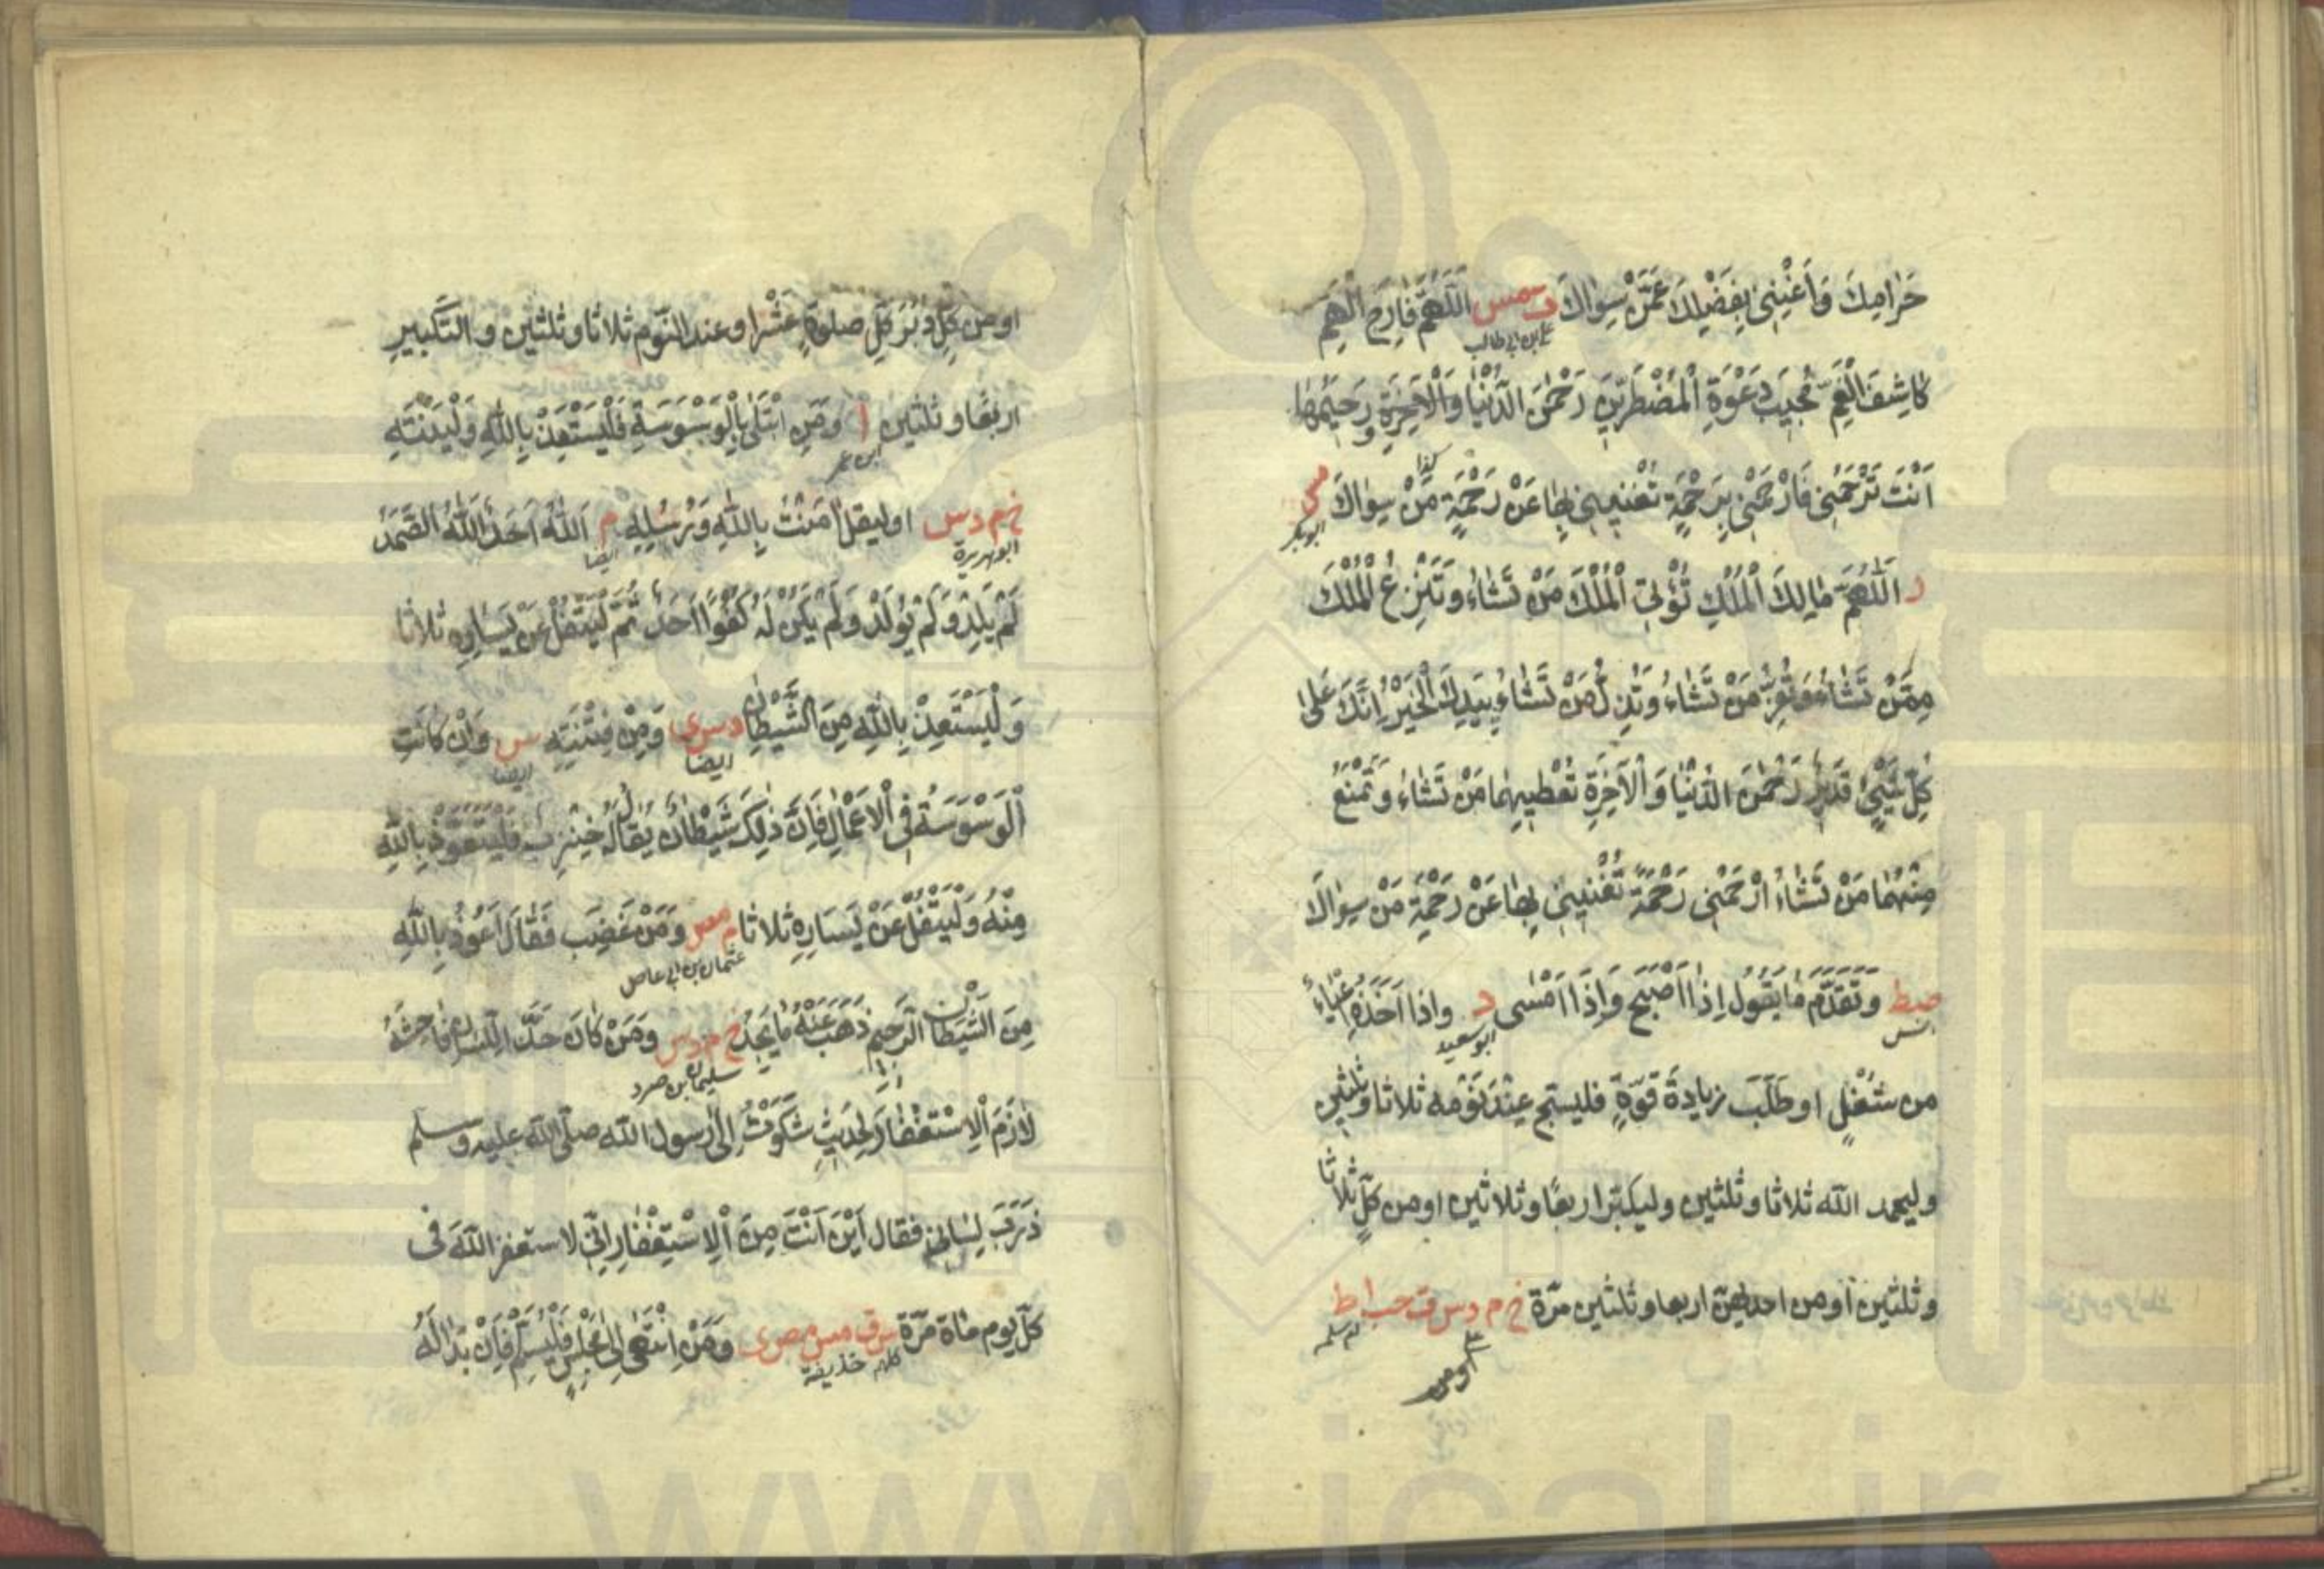 حَرَامِكَ وَاَغْنِنِىْ بِفَضْلِكَ عَمَّنْ سِوَاكَ ت مس اَللّٰهُمَّ فَارِجَ الْهَمِّ
على بن ابى طالب
كَاشِفَ الْغَمِّ مُجِيْبَ دَعْوَةِ الْمُضْطَرِّيْنَ رَحْمٰنَ الدُّنْيَا وَالْاٰخِرَةِ وَرَحِيْمَهُمَا
اَنْتَ تَرْحَمُنِىْ فَارْحَمْنِىْ بِرَحْمَةٍ تُغْنِيْنِىْ بِهَا عَنْ رَحْمَةِ مَنْ سِوَاكَ مس
كذا
ابوبكر
ر اَللّٰهُمَّ مَالِكَ الْمُلْكِ تُؤْتِى الْمُلْكَ مَنْ تَشَاءُ وَتَنْزِعُ الْمُلْكَ
مِمَّنْ تَشَاءُ وَتُعِزُّ مَنْ تَشَاءُ وَتُذِلُّ مَنْ تَشَاءُ بِيَدِكَ الْخَيْرُ اِنَّكَ عَلٰى
كُلِّ شَيْئٍ قَدِيْرٌ رَحْمٰنَ الدُّنْيَا وَالْاٰخِرَةِ تُعْطِيْهِمَا مَنْ تَشَاءُ وَتَمْنَعُ
مِنْهُمَا مَنْ تَشَاءُ ارْحَمْنِىْ رَحْمَةً تُغْنِيْنِىْ بِهَا عَنْ رَحْمَةِ مَنْ سِوَاكَ
صط وَتَقَدَّمَ مَا يَقُوْلُ اِذَا اَصْبَحَ وَاِذَا اَمْسٰى د واذا اَخَذَهٗ اِعْيَاءٌ
انس
ابو سعيد
من شُغْلٍ او طَلَبَ زيادةَ قُوَّةٍ فليسبّح عِنْدَ نَوْمه ثلاثا وثلثين
وليحمد الله ثلاثا وثلثين وليكبّر اربعًا وثلاثين اومن كلٍّ ثلاثا
وثلثين اومن احدٰهنّ اربعا وثلثين مرّة خ م د س ت حب ا ط
ام سلمه
على
اومن
اومن كلٍّ دُبُرَ كلِّ صلوةٍ عَشْرا وعند النّوم ثلاثا وثلثين والتّكبيرِ
اربعًا وثلثين ا وَمَنِ ابْتُلِىَ بِالْوَسْوَسَةِ فَلْيَسْتَعِذْ بِاللهِ وَلْيَنْتَهِ
ابن عمر
خ م د س اوليقل اٰمَنْتُ بِاللهِ وَرُسُلِهٖ م اَللهُ اَحَدٌ اَللهُ الصَّمَدُ
ابوهريرة
ايضا
لَمْ يَلِدْ وَلَمْ يُوْلَدْ وَلَمْ يَكُنْ لَهٗ كُفُوًا اَحَدٌ ثُمَّ لْيَتْفُلْ عَنْ يَسَارِهٖ ثلاثا
وَلْيَسْتَعِذْ بِاللهِ مِنَ الشَّيْطَانِ د س ى وَمِنْ فِتْنَتِهٖ س وَاِنْ كَانَتِ
ايضا
ايضا
الْوَسْوَسَةُ فِى الْاَعْمَالِ فَاِنَّ ذٰلِكَ شَيْطَانٌ يُقَالُ لَهٗ خِنْزِبٌ فَلْيَتَعَوَّذْ بِاللهِ
مِنْهُ وَلْيَتْفُلْ عَنْ يَسَارِهٖ ثلاثا م مص وَمَنْ غَضِبَ فَقَالَ اَعُوْذُ بِاللهِ
عثمان بن ابى عاص
مِنَ الشَّيْطَانِ الرَّجِيْمِ ذَهَبَ عَنْهُ مَا يَجِدُ خ م د س وَمَنْ كَانَ حَدَّ اللِّسَانِ فَاحِشَهٗ
سليمان بن صرد
لَازَمَ الْاِسْتِغْفَارَ لِحَدِيْثِ شَكَوْتُ اِلٰى رسول الله صلّى الله عليه وسلم
ذَرَبَ لِسَانِىْ فقال اَيْنَ اَنْتَ مِنَ الْاِسْتِغْفَارِ اِنِّىْ لاستغفر اللهَ فى
كلّ يوم مائة مرّة س ق مس مص ى وَمَنِ انْتَهٰى اِلٰى مَجْلِسٍ فَلْيُسَلِّمْ فَاِنْ بَدَا لَهٗ
كلهم حذيفة
www.ical.ir